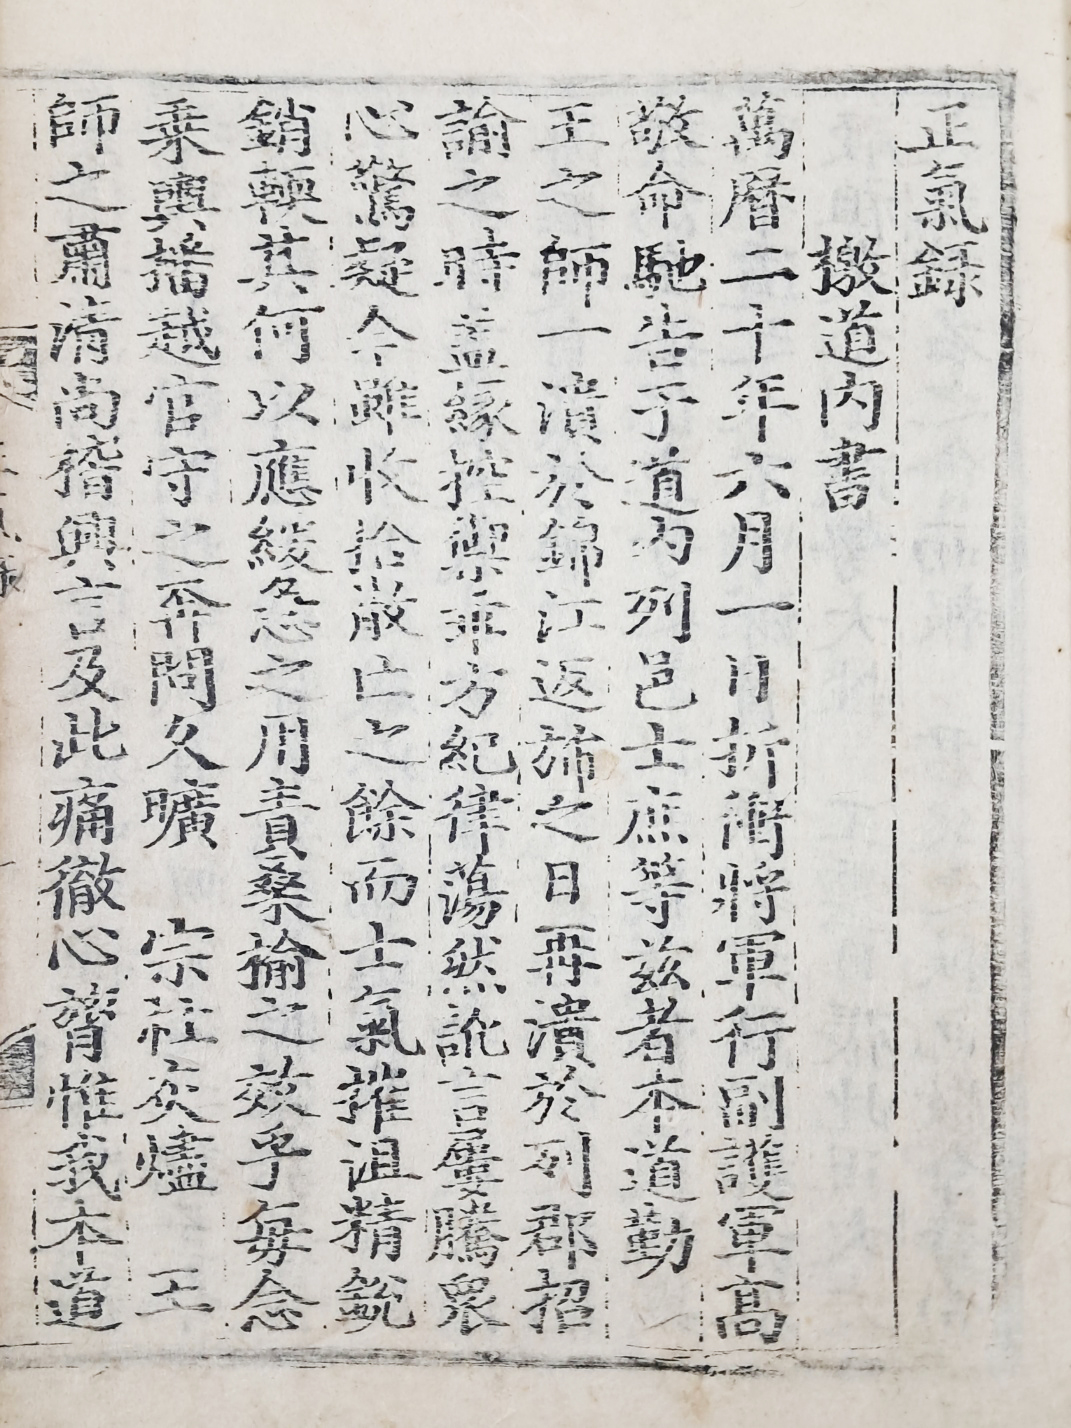 正氣錄
檄道內書
萬曆二十年六月一日折衝將軍行副護軍高
敬命馳告于道內列邑士庶等玆者本道勤
王之師一潰於錦江返旆之日再潰於列郡招
諭之時盖緣控禦乖方紀律蕩然訛言屢騰衆
心驚疑今雖收拾散亡之餘而士氣摧沮精銳
銷耎其何以應緩急之用責桑榆之效乎每念
乘輿播越官守之奔問久曠 宗社灰燼 王
師之肅淸尙稽興言及此痛徹心膂惟我本道